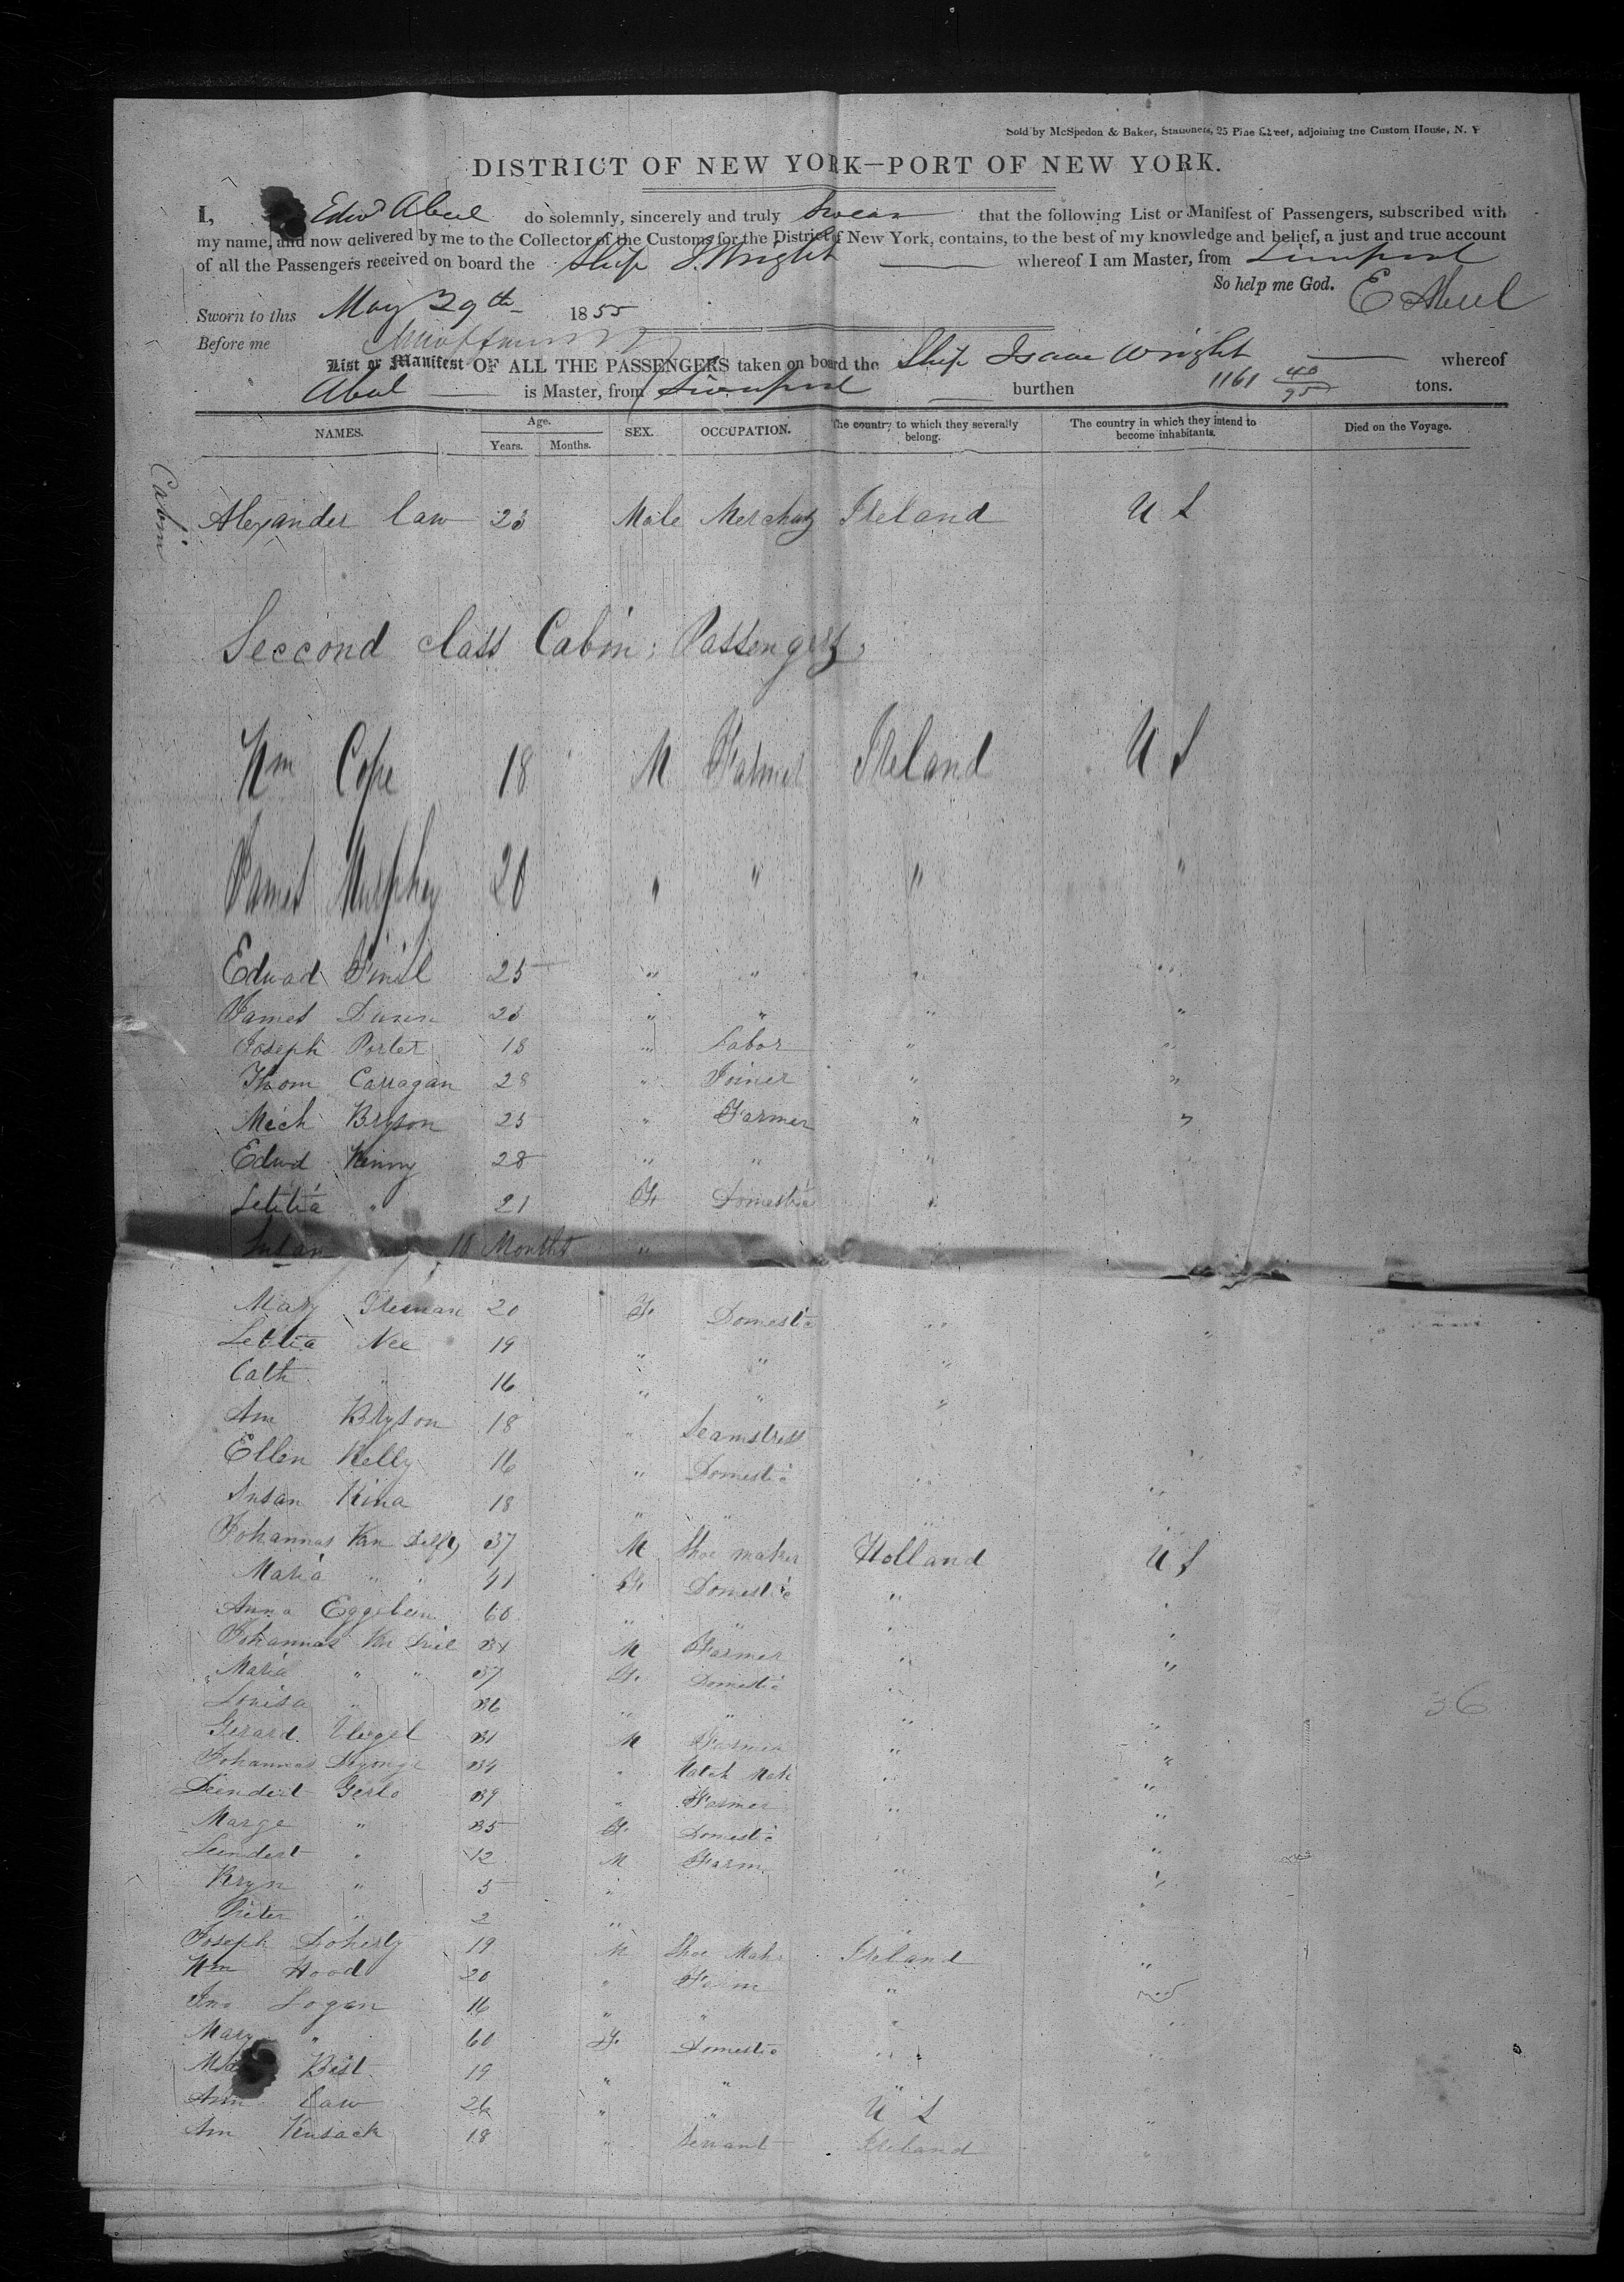 Sold by McSpedon & Baker, Stationers, 25 Pine Street, adjoining the Custom House, N. Y
DISTRICT OF NEW YORK—PORT OF NEW YORK.
I, Edwd Abeel do solemnly, sincerely and truly Swear that the following List or Manifest of Passengers, subscribed with
my name, and now delivered by me to the Collector of the Customs for the District of New York, contains, to the best of my knowledge and belief, a just and true account
of all the Passengers received on board the Ship I. Wright whereof I am Master, from Liverpool
So help me God. E Abeel
Sworn to this May 29th 1855
Before me
List or Manifest OF ALL THE PASSENGERS taken on board the Ship Isaac Wright whereof
Abeel is Master, from Liverpool burthen 1161 40/95 tons.
NAMES. Age. Years. Months. SEX. OCCUPATION. The country to which they severally belong. The country in which they intend to become inhabitants. Died on the Voyage.
Cabin
Alexander Law 23 Male Merchat Ireland U S
Seccond class Cabin; Passengers,
Wm Cope 18 M Farmer Ireland U S
James Murphey 20 " " " "
Edwad 25 " " " "
James Dunn 23 " " " "
Joseph Porter 18 " Labor " "
Thom Carragan 28 " Joiner " "
Mich Bryson 25 " Farmer " "
Edwd Kinny 28 " " " "
Letitia " 21 F. Domestic "
Susan 10 Months "
Mary 20 F. Domestic " "
Letitia Nee 19 " " "
Cath " 16 " " "
Ann Bryson 18 " Seamstress "
Ellen Kelly 16 " Domestic " "
Susan Kina 18 " " " "
Johannas Van Delft 37 M Shoe maker Holland U S
Maria " " 41 F. Domestic " "
Anna Eggebeen 60 " " " "
Johannas M Farmer " "
Maria " " 37 F. Domestic "
Louisa " 36 " " " "
Gerard Vlegel 31 M Farmer " "
Johannas 34 " " "
Leendert Gerlo 39 " Farmer " "
Marge " 35 F. Domestic "
Leendert " 12 M Farm " "
Kryn " 5 "
Pieter " 2 "
36
Joseph Doherty 19 M Shoe Mak Ireland "
Wm Hood 20 " Farm "
Jno Logan 16 " " " "
Mary " 60 F. Domestic " "
Best 19 " " "
Ann Law 26 " " U S "
Ann Kusack 18 " Servant Ireland "